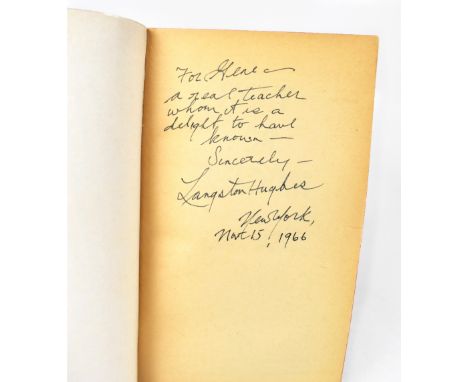 For Gene —
a real teacher
whom it is a
delight to have
known —
Sincerely —
Langston Hughes
New York,
Nov. 15, 1966